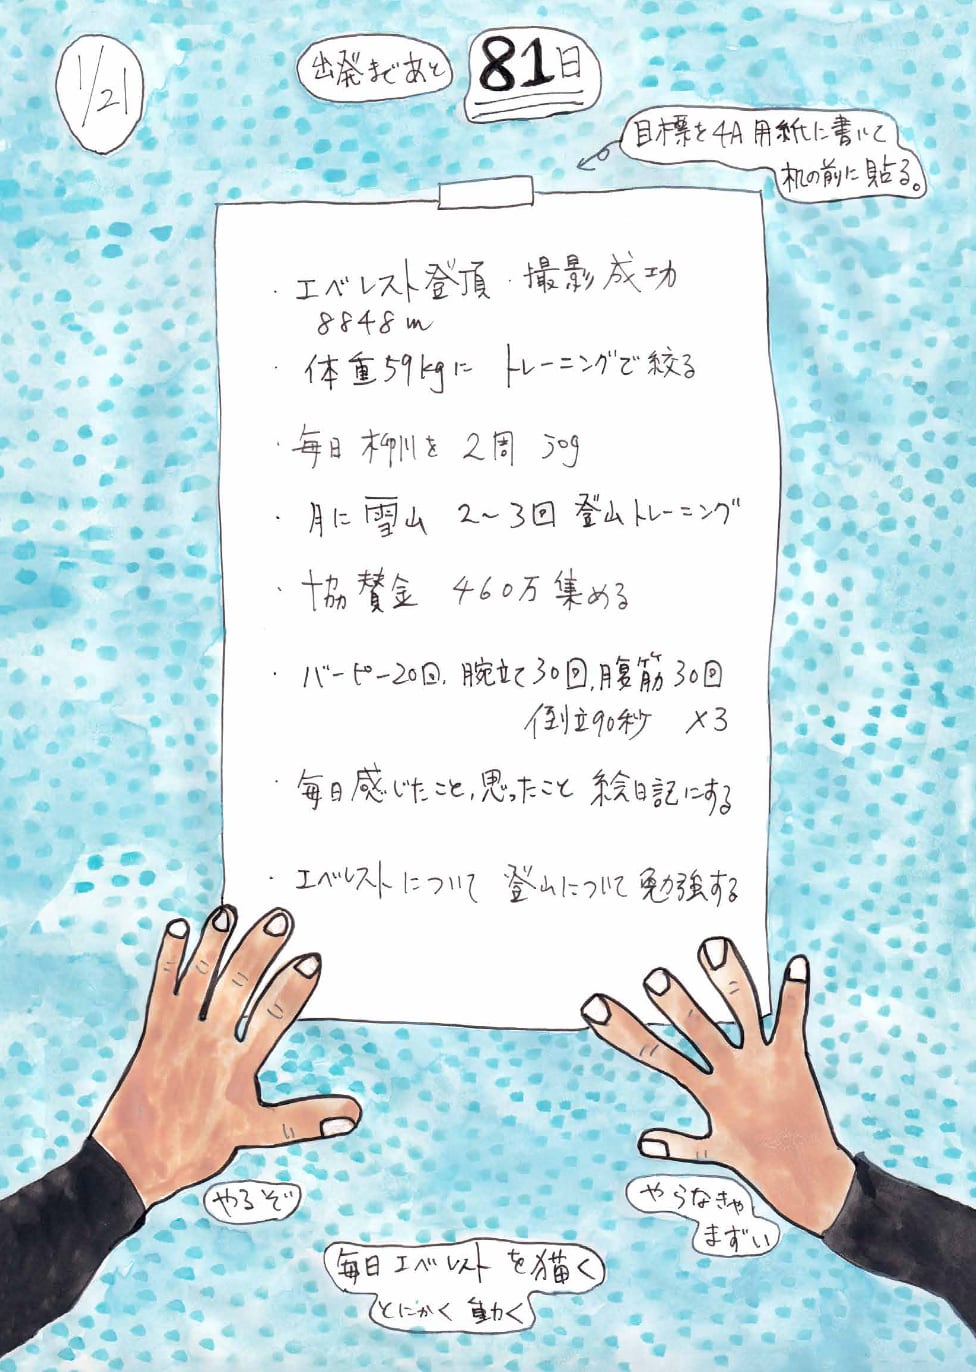 1/21
出発まであと 81日
目標を4A用紙に書いて
机の前に貼る。
・エベレスト登頂・撮影成功
8848m
・体重59kgに トレーニングで絞る
・毎日 柳川を 2周 30g
・月に雪山 2〜3回 登山トレーニング
・協賛金 460万集める
・バーピー20回、腕立て30回、腹筋30回
倒立90秒 ×3
・毎日感じたこと、思ったこと 絵日記にする
・エベレストについて 登山について勉強する
やるぞ
やらなきゃ
まずい
毎日エベレストを描く
とにかく動く